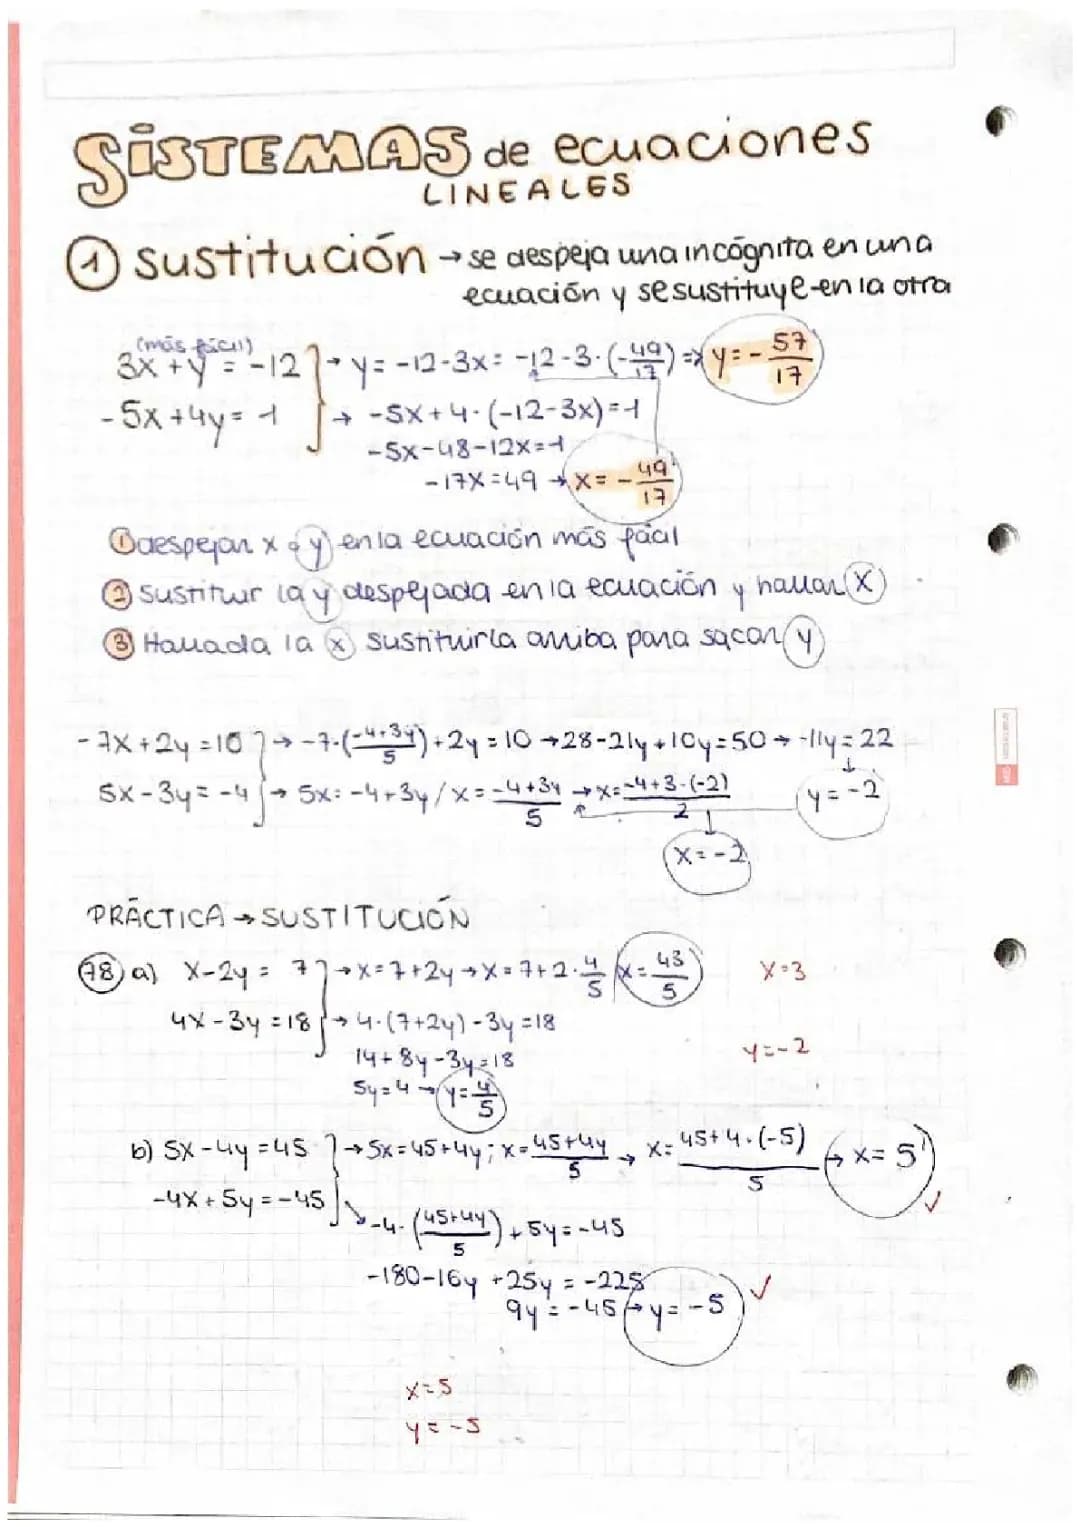 SISTEMAS de ecuaciones
LINEALES
① sustitución → se despeja una incógnita en una
ecuación y se sustituye en la otra
(más fácil)
3x + y = -12 → y = -12-3x = -12-3·(-49/17) ⇒ y = -57/17
-5x+4y = -1 → -5x+4·(-12-3x) = -1
-5x-48-12x=-1
-17x=49 → x = -49/17
① despejar x o y en la ecuación más fácil
② Sustituir la y despejada en la ecuación y hallar x
③ Hallada la x sustituirla arriba para sacar y
-7x+2y=10 → -7·(-4+3y/5)+2y=10 → 28-21y+10y=50 → -11y=22
5x-3y=-4 → 5x=-4+3y / x=-4+3y/5 → x=-4+3·(-2)/2 y=-2
x=-2
PRÁCTICA → SUSTITUCIÓN
78 a) x-2y = 7 → x=7+2y → x=7+2·4/5 x=43/5 x=3
4x-3y=18 → 4·(7+2y)-3y=18
14+8y-3y=18 y=-2
5y=4 → y=4/5
b) 5x-4y=45 → 5x=45+4y; x=45+4y/5 → x=45+4·(-5)/5 → x=5
-4x+5y=-45
-4·(45+4y/5)+5y=-45
-180-16y+25y=-225
9y=-45 → y=-5
x=5
y=-5